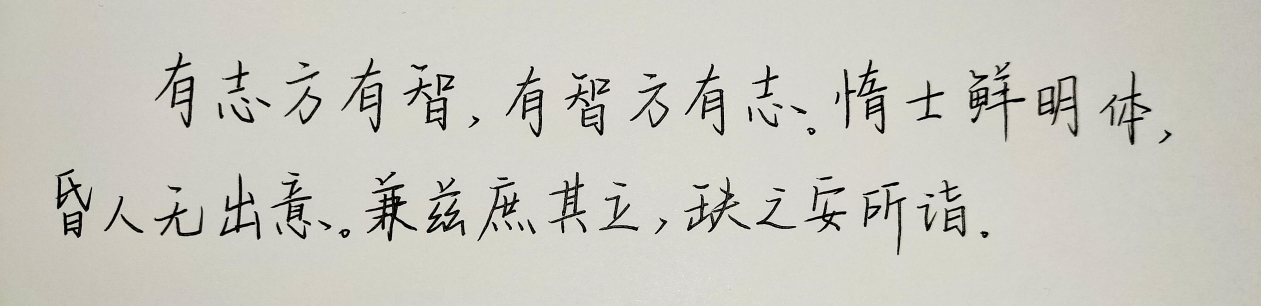 有志方有智,有智方有志。惰士鲜明体,
昏人无出意。兼兹庶其立,缺之安所诣.